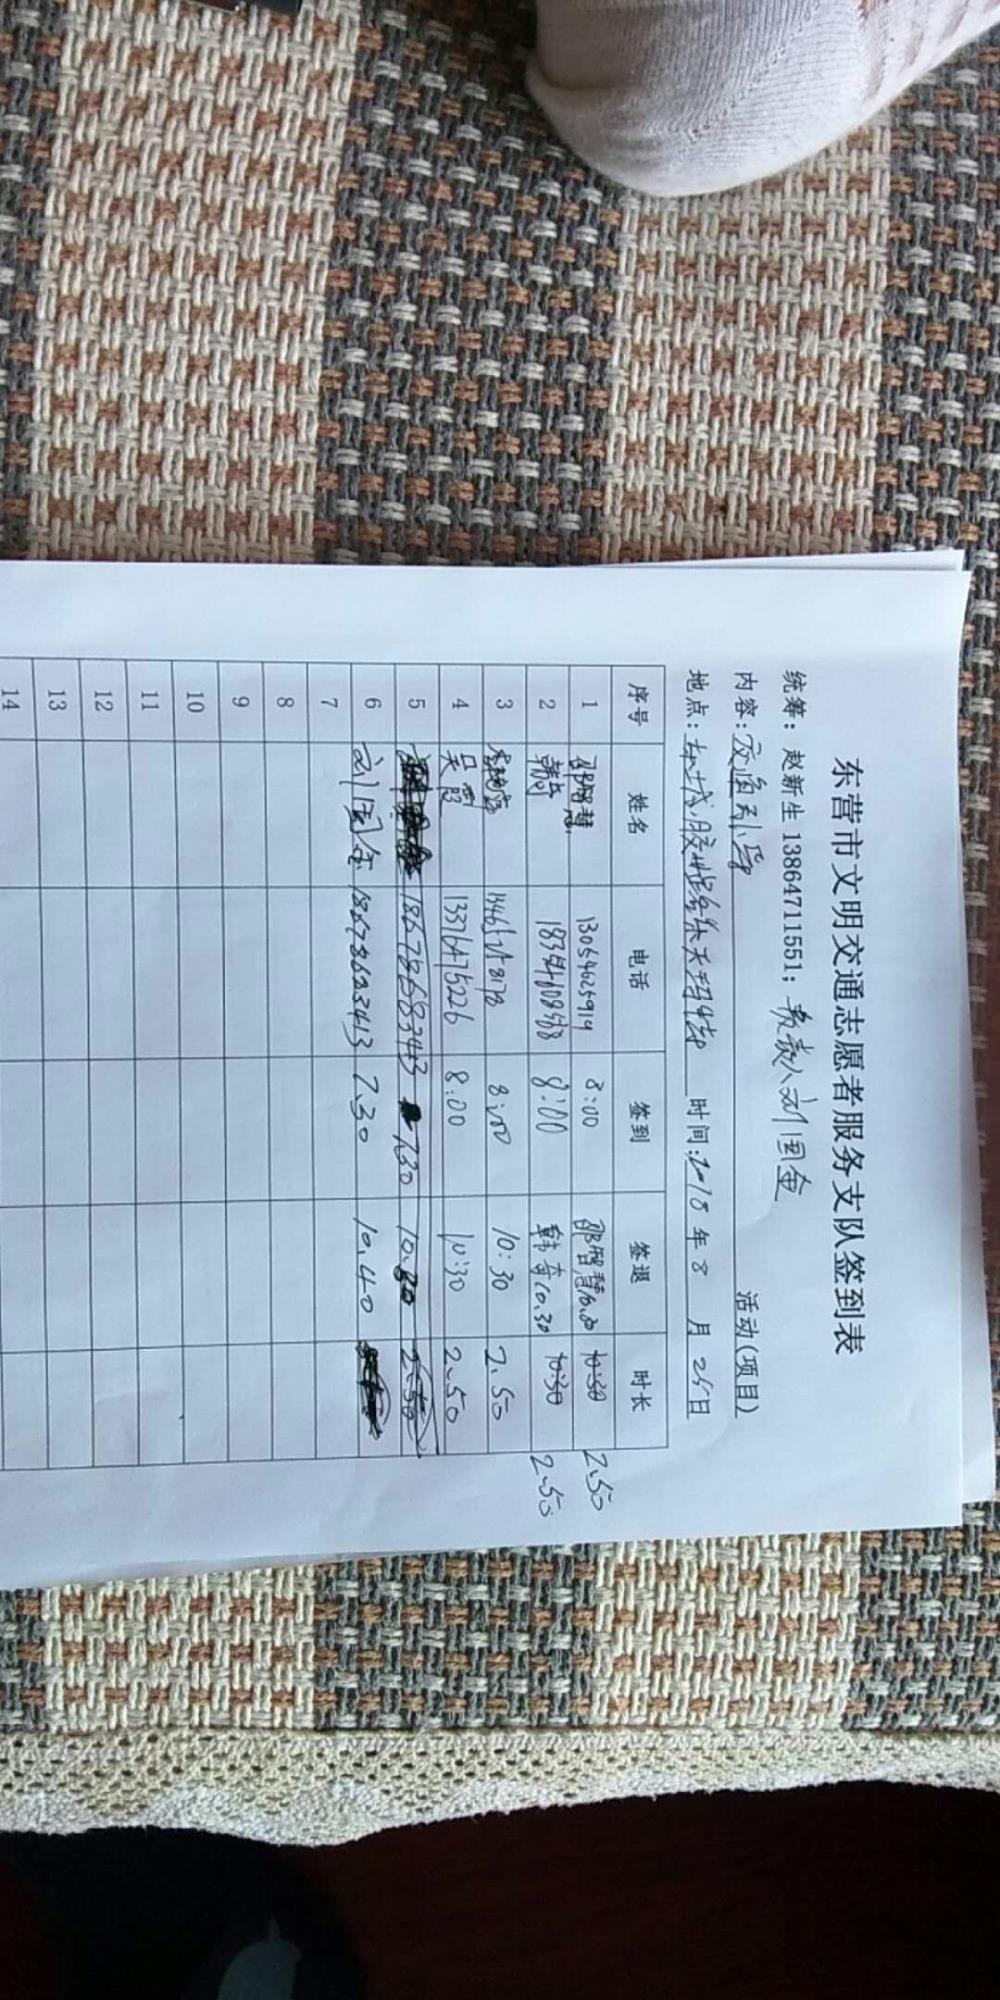 东营市文明交通志愿者服务支队签到表
统筹： 赵新生 13864711551； 负责人刘国金
内容：交通引导 活动（项目）
地点：东城胶州路乐天玛特 时间：2018 年 8 月 25日
序号 姓名 电话 签到 签退 时长
1 邵智慧 13054625919 8:00 邵智慧10.30 10:30 2.50
2 8:00 韩奇10.30 10:30 2.50
3 8:00 10:30 2.50
4 吴霞 13376475226 8:00 10:30 2.50
5 18678683413 7.30 2.50
6 刘国金 18678623413 7.30 10.40
7
8
9
10
11
12
13
14